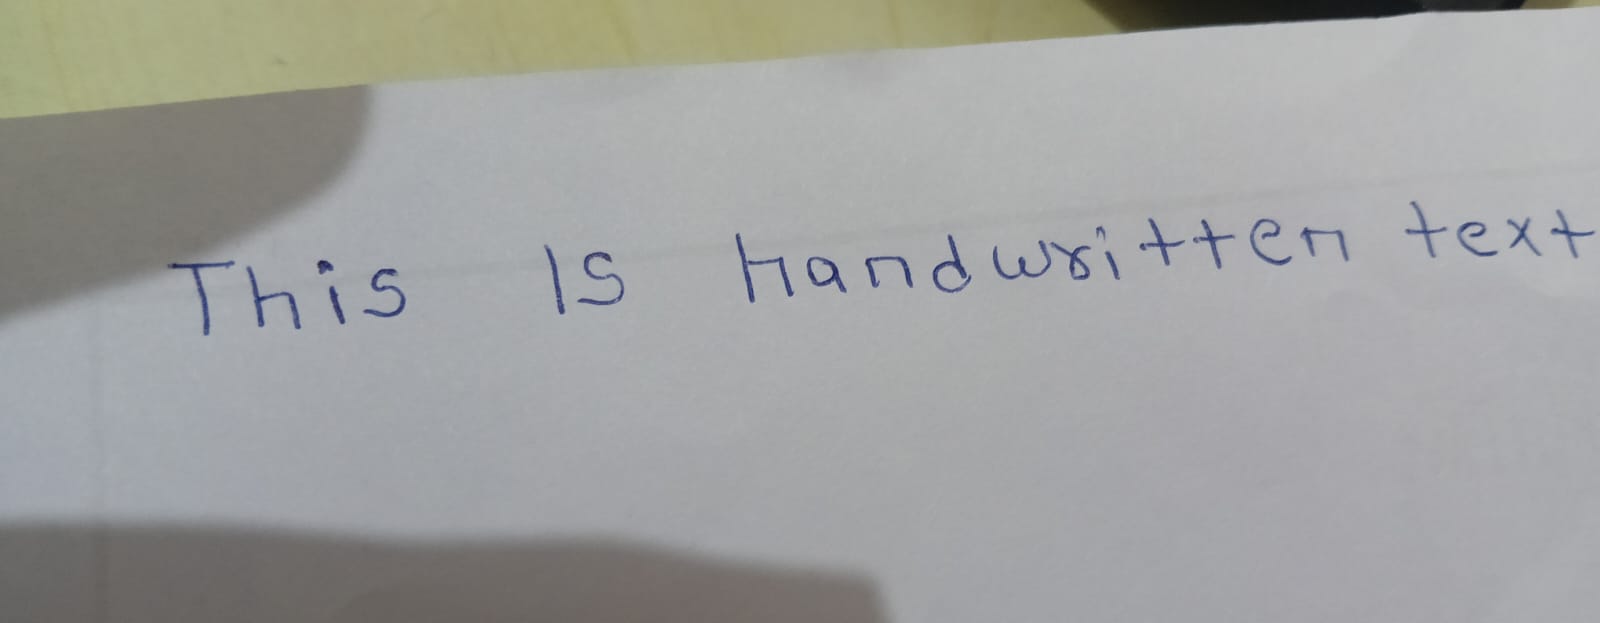 This Is handwritten text